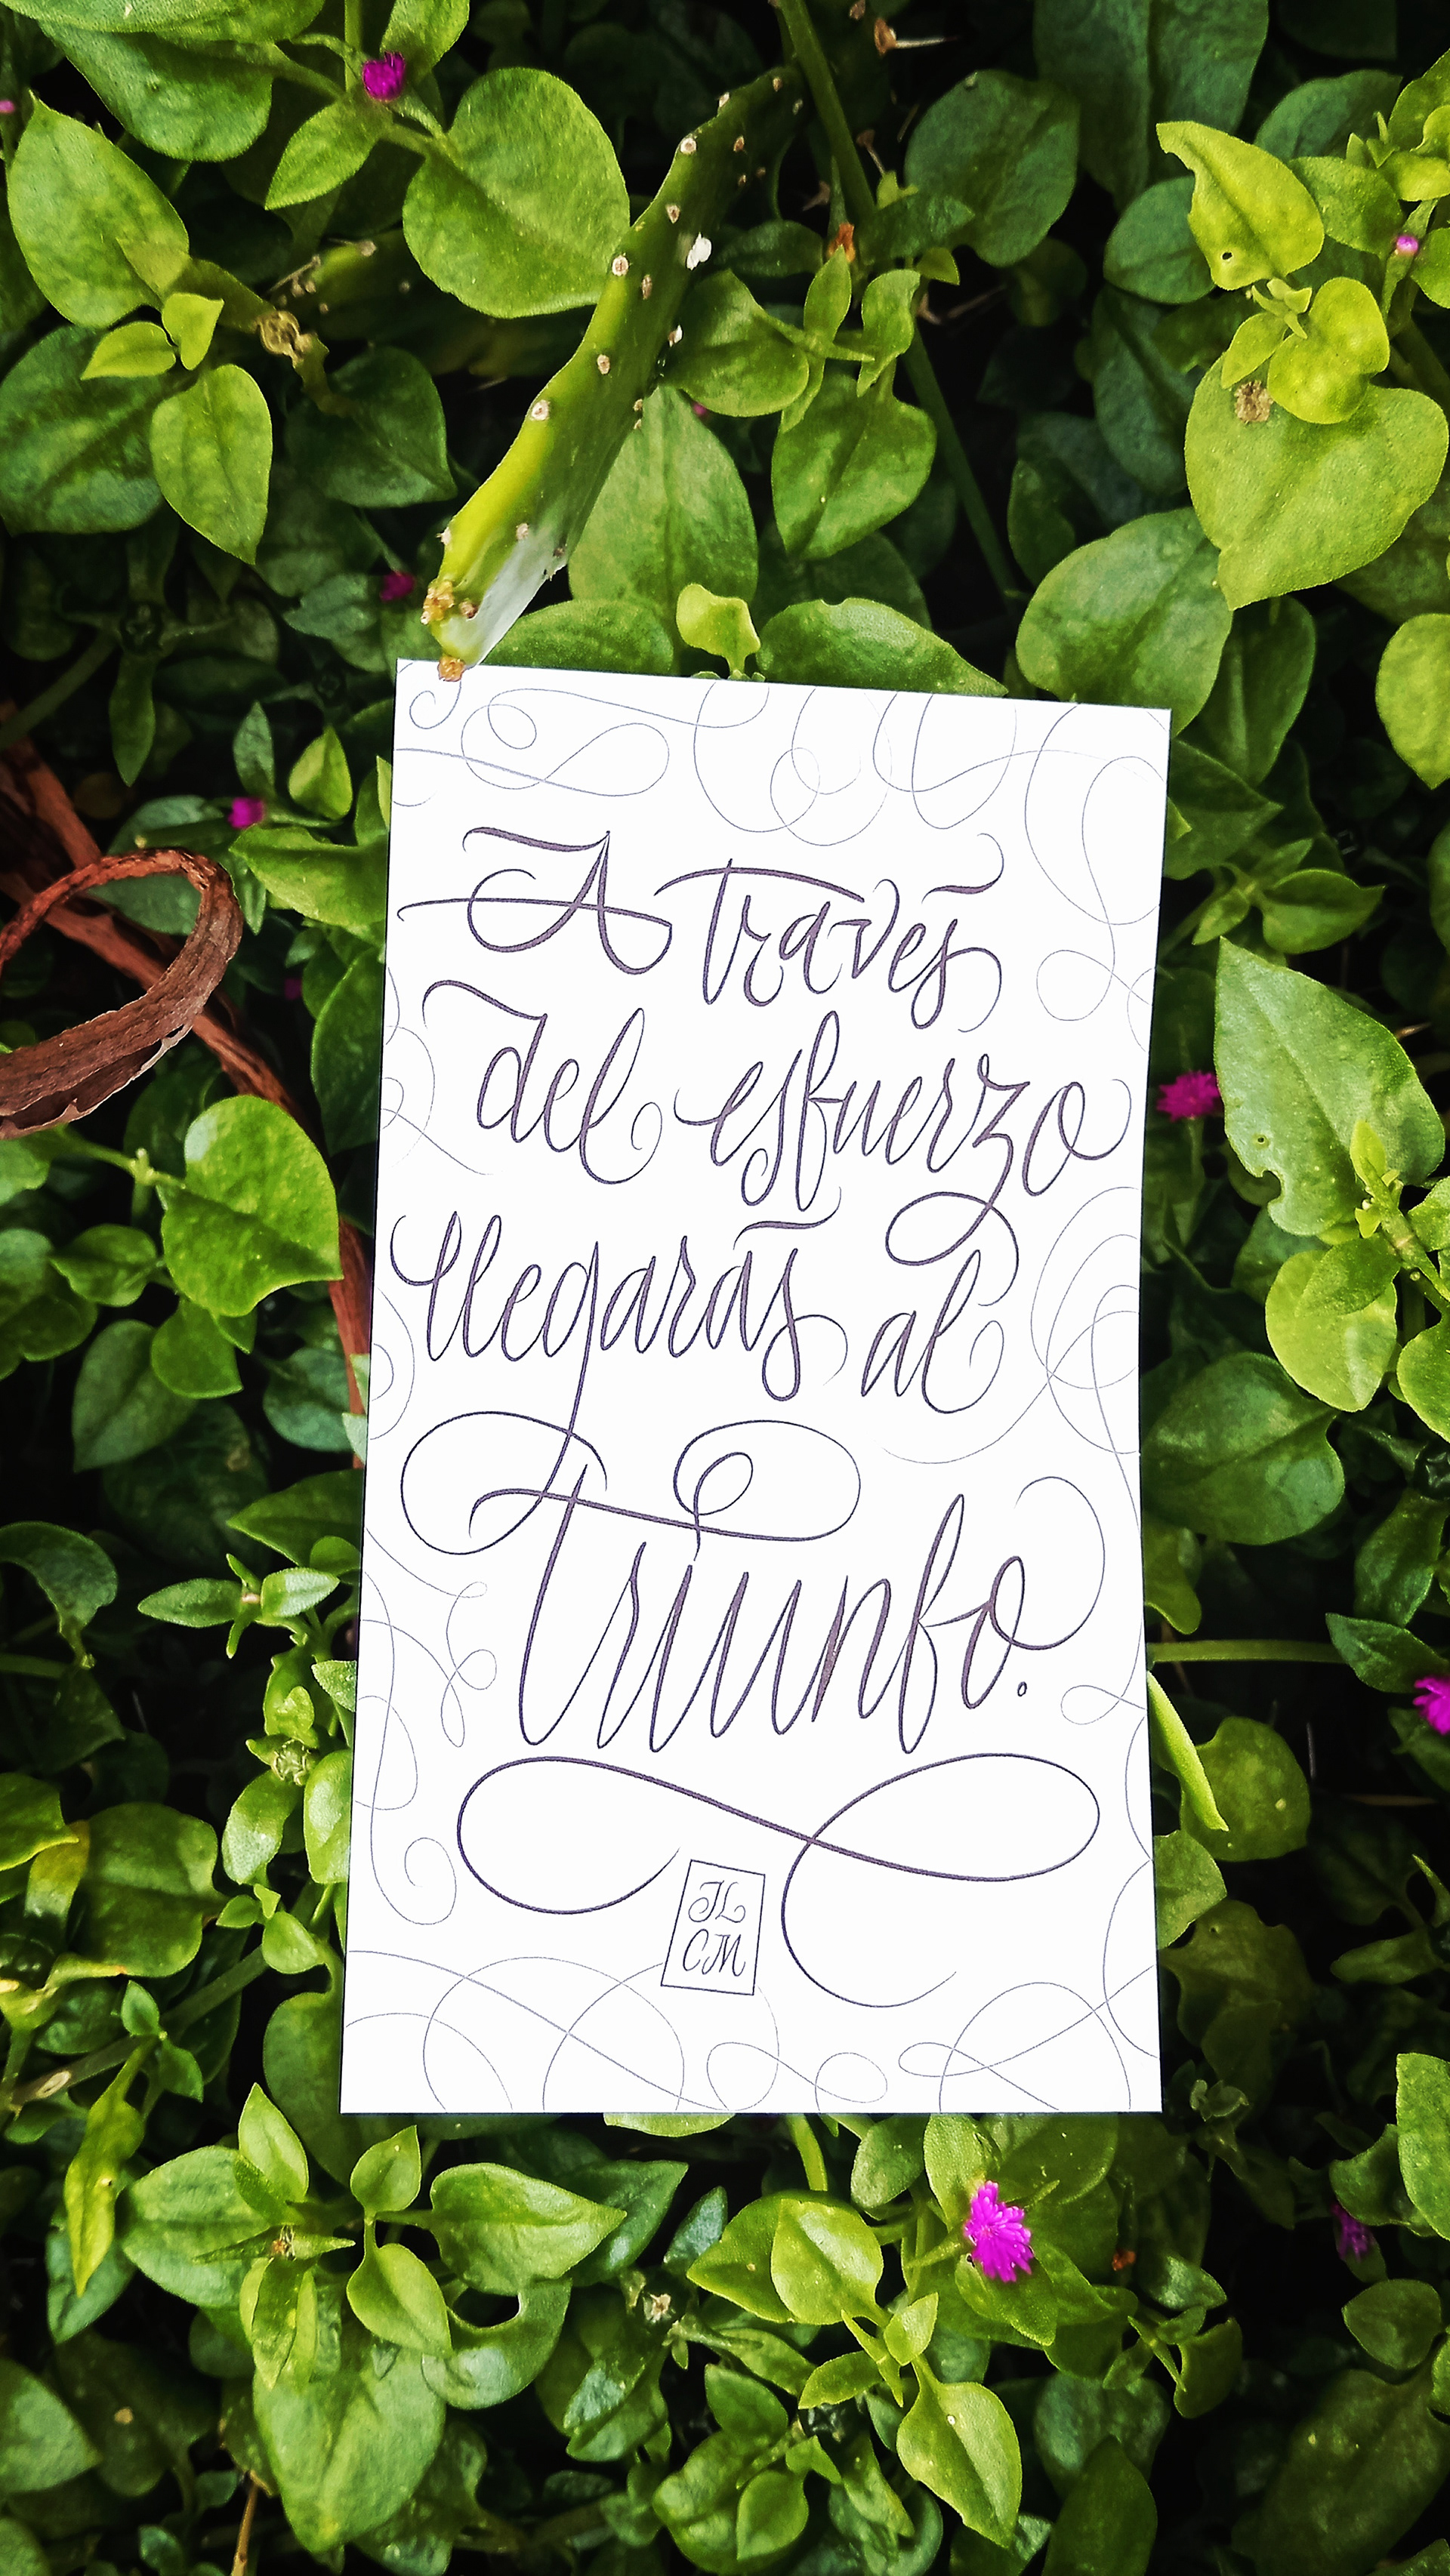 A través
del esfuerzo
llegarás al
triunfo.
JL
CM